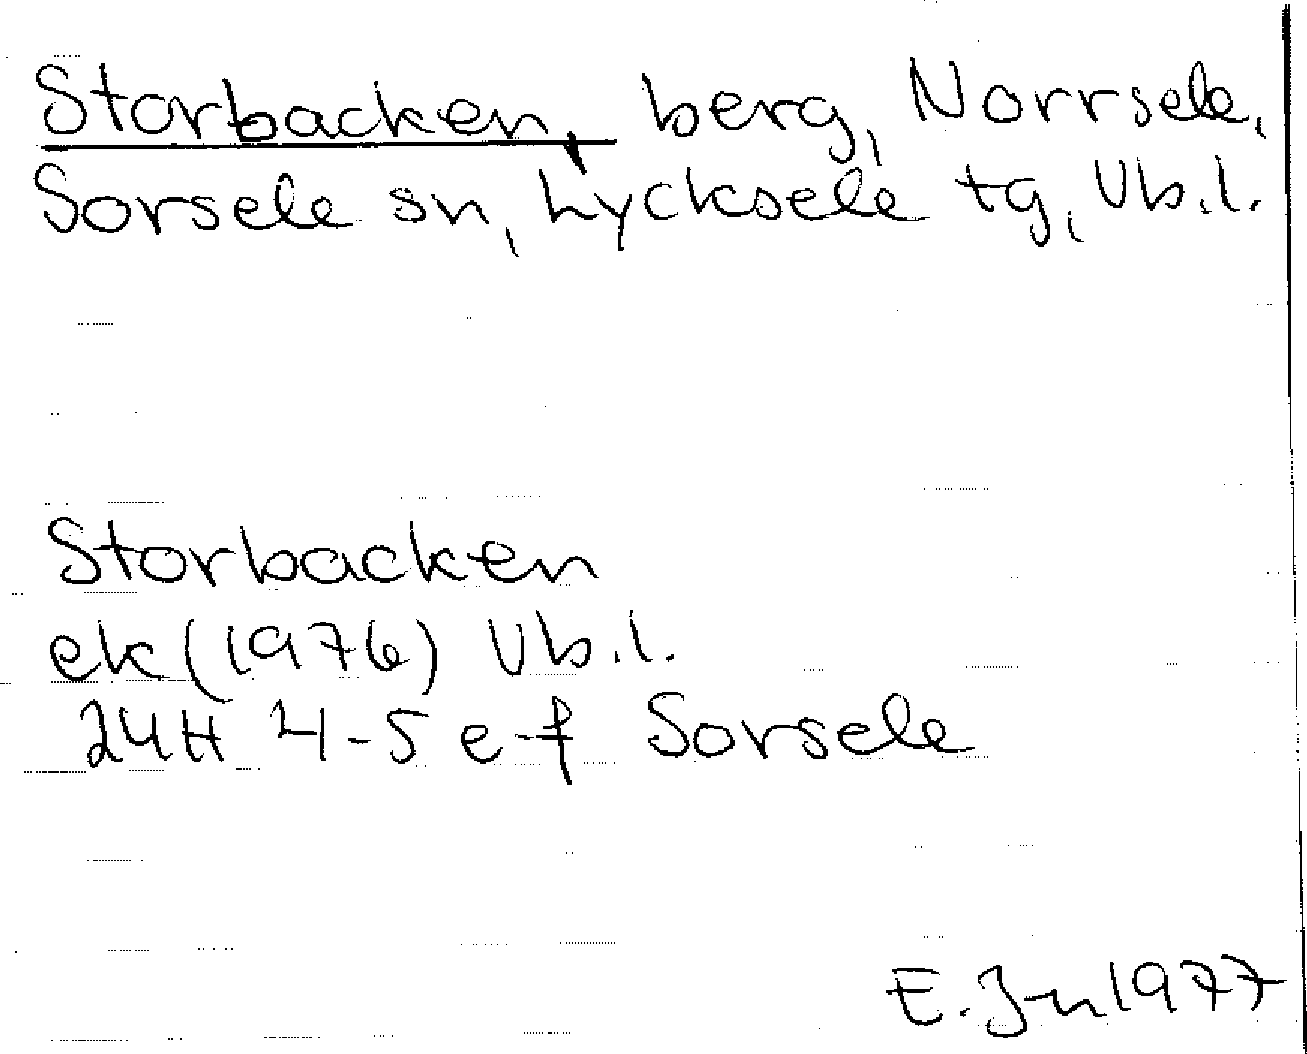 Storbacken, berg, Norrsele,
Sorsele sn, Lycksele tg, Vb.l.
Storbacken
ek (1976) Vb.l.
24H 4-5 e-f Sorsele
E. Jn 1977